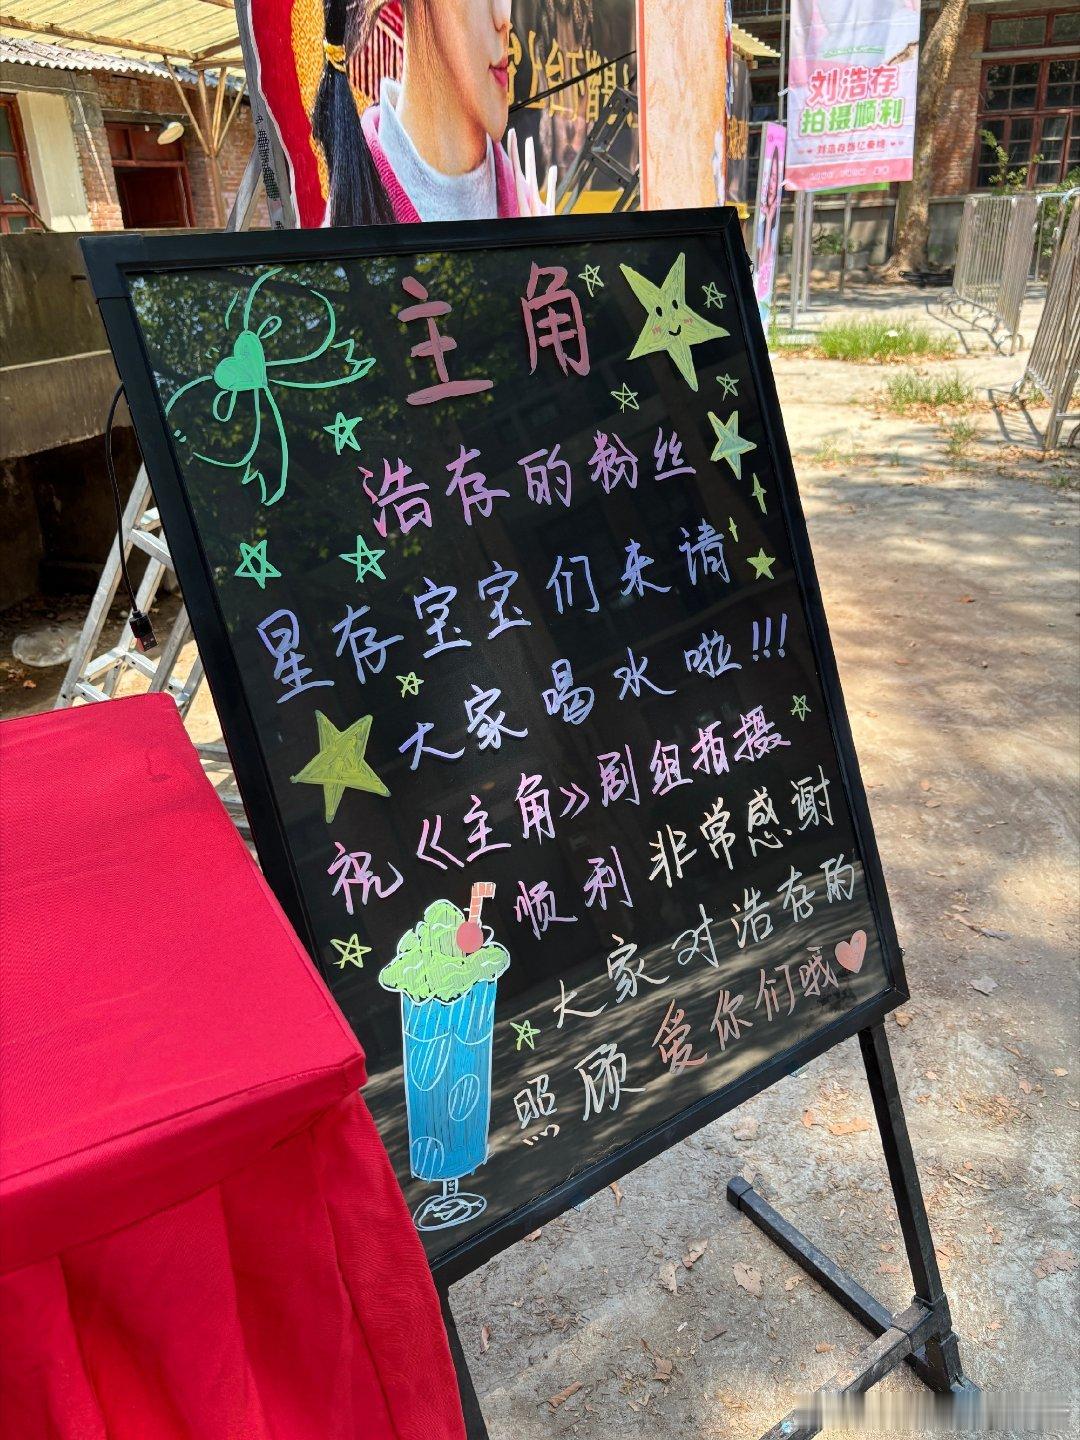 刘浩存
拍摄顺利
主角
浩存的粉丝
星存宝宝们来请
大家喝水啦!!!
祝《主角》剧组拍摄
顺利 非常感谢
大家对浩存的
照顾 爱你们哦